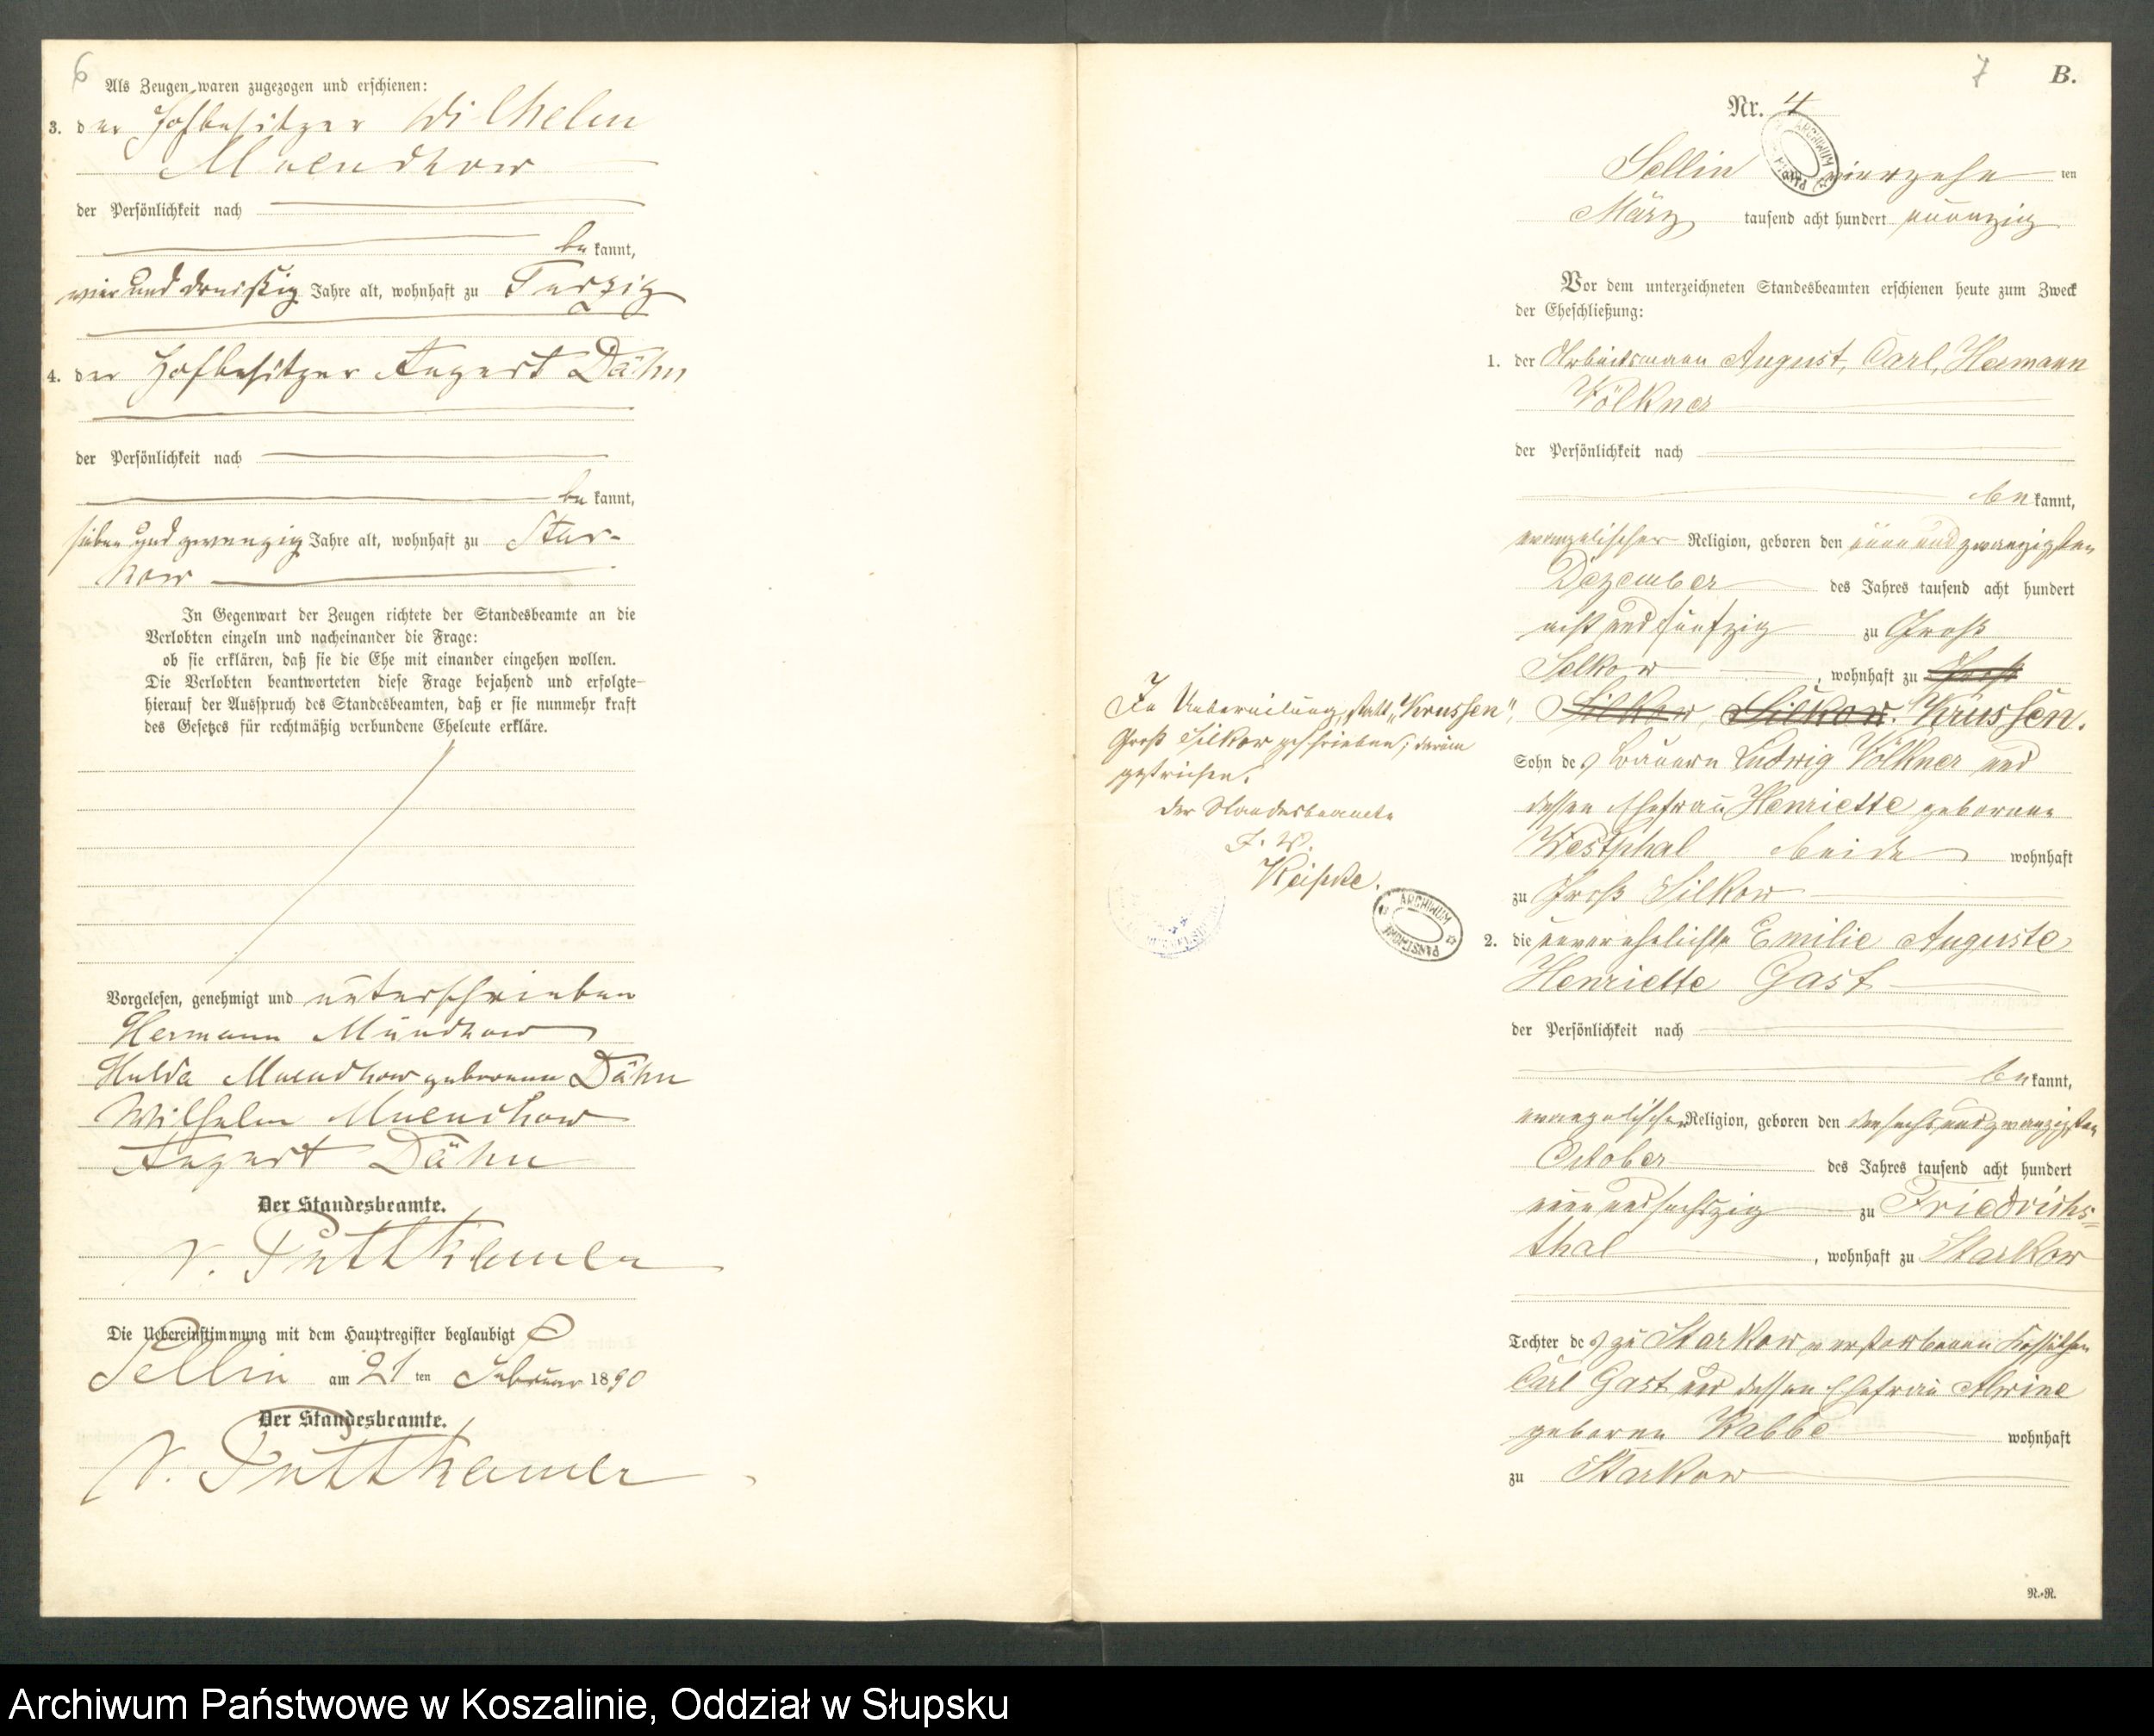 6
Als Zeugen waren zugezogen und erschienen:
3. der Hofbesitzer Wilhelm
Muendkow
der Persönlichkeit nach
be kannt,
vier und dreißig Jahre alt, wohnhaft zu Turzig
4. der Hofbesitzer August Dähn
der Persönlichkeit nach
be kannt,
sieben und zwanzig Jahre alt, wohnhaft zu Star-
kow
In Gegenwart der Zeugen richtete der Standesbeamte an die
Verlobten einzeln und nacheinander die Frage:
ob sie erklären, daß sie die Ehe mit einander eingehen wollen.
Die Verlobten beantworteten diese Frage bejahend und erfolgte
hierauf der Ausspruch des Standesbeamten, daß er sie nunmehr kraft
des Gesetzes für rechtmäßig verbundene Eheleute erkläre.
Vorgelesen, genehmigt und unterschrieben
Hermann Mündkow
Hulda Muendkow geborene Dähn
Wilhelm Muendkow
August Dähn
Der Standesbeamte.
v. Puttkamer
Die Uebereinstimmung mit dem Hauptregister beglaubigt
Sellin am 21 ten Februar 1890
Der Standesbeamte.
v. Puttkamer
7
B.
Nr. 4
Sellin vierzehn ten
März tausend acht hundert neunzig
Vor dem unterzeichneten Standesbeamten erschienen heute zum Zweck
der Eheschließung:
1. der Arbeitsmann August, Carl, Hermann
Völkner
der Persönlichkeit nach
be kannt,
evangelischer Religion, geboren den neun und zwanzigsten
Dezember des Jahres tausend acht hundert
acht und fünfzig zu Groß
Silkow, wohnhaft zu Groß
Silkow, Silkow. Krussen.
Sohn des Bauern Ludwig Völkner und
dessen Ehefrau Henriette geborene
Westphal beide wohnhaft
zu Groß Silkow
In Uebereilung, statt „Krussen",
Groß Silkow geschrieben; darum
gestrichen.
Der Standesbeamte
J. V.
ARCHIWUM PAŃSTWOWE
2. die unverehelichte Emilie Auguste
Henriette Gast
der Persönlichkeit nach
be kannt,
evangelischer Religion, geboren den den sechs und zwanzigsten
October des Jahres tausend acht hundert
neun und sechszig zu Friedrichs=
thal, wohnhaft zu Starkow
Tochter des zu Starkow verstorbenen Kossäthen
Carl Gast und dessen Ehefrau Alwine
geborene Rabbe wohnhaft
zu Starkow
N.-N.
Archiwum Państwowe w Koszalinie, Oddział w Słupsku